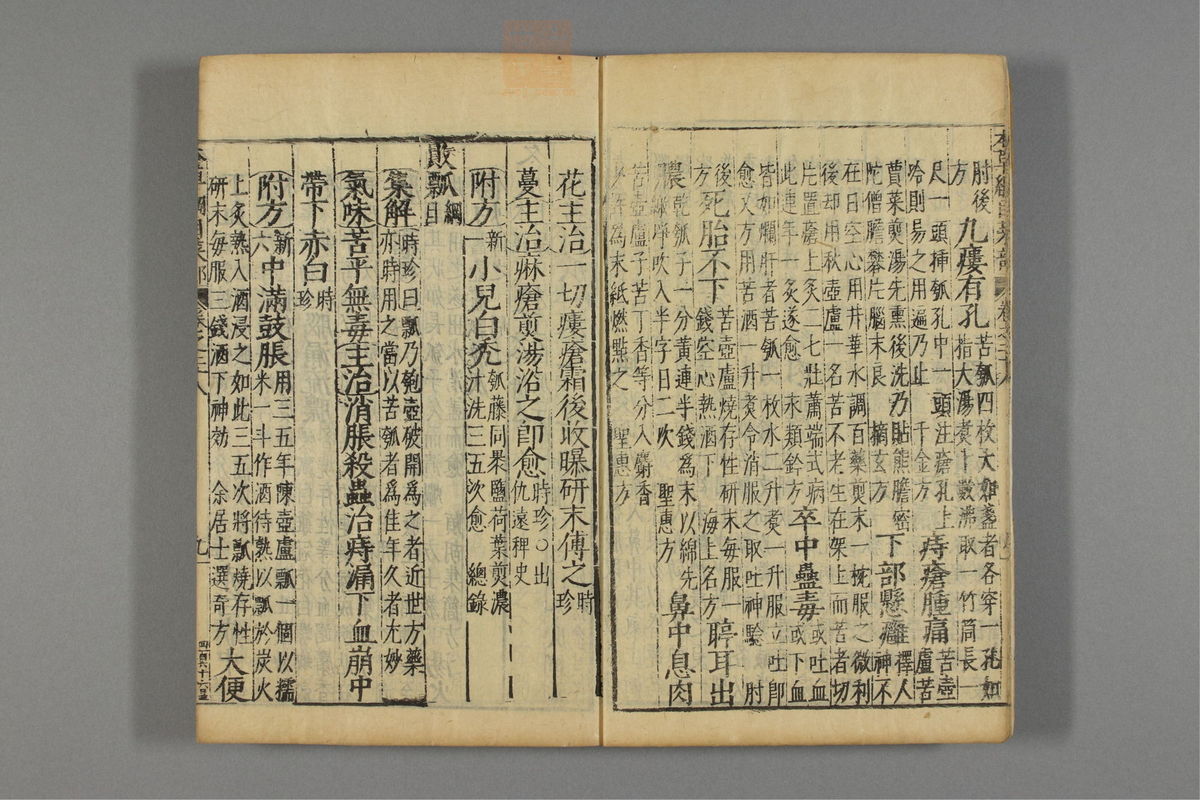 肘後
方
九瘻有孔
苦瓠四枚大如盞者各穿一孔如
指大湯煮十數沸取一竹筒長一
尺一頭揷瓠孔中一頭注瘡孔上
冷則易之用遍乃止 千金方
痔瘡腫痛
苦壺
盧苦
蕒菜煎湯先熏後洗乃貼熊膽密
陀僧膽礬片腦末良 摘玄方
下部懸癰
擇人
神不
在日空心用井華水調百藥煎末一椀服之微利
後却用秋壺盧一名苦不老生在架上而苦者切
片置瘡上灸二七壯蕭端式病
此連年一灸遂愈 永類鈐方
卒中蠱毒
或吐血
或下血
皆如爛肝者苦瓠一枚水二升煮一升服立吐即
愈又方用苦酒一升煮令消服之取吐神驗 肘
後
死胎不下
苦壺盧燒存性研末每服一
錢空心熱酒下 海上名方
聤耳出
膿
乾瓠子一分黃連半錢為末以綿先
繳淨吹入半字日二次 聖惠方
鼻中息肉
苦壺盧子苦丁香等分入麝香
少許為末紙撚點之 聖惠方
花主治一切瘻瘡霜後收曝研末傅之時
珍
蔓主治麻瘡煎湯浴之即愈時珍○出
仇遠稗史
附方新
一
小兒白禿
瓠藤同裹鹽荷葉煎濃
汁洗三五次愈 總錄
敗瓢綱
目
集解時珍曰瓢乃匏壺破開為之者近世方藥
亦時用之當以苦瓠者為佳年久者尤妙
氣味苦平無毒主治消脹殺蟲治痔漏下血崩中
帶下赤白時
珍
附方新
六
中滿鼓脹
用三五年陳壺盧瓢一個以糯
米一斗作酒待熟以瓢於炭火
上炙熱入酒浸之如此三五次將瓢燒存性
研末每服三錢酒下神効 余居士選奇方
大便